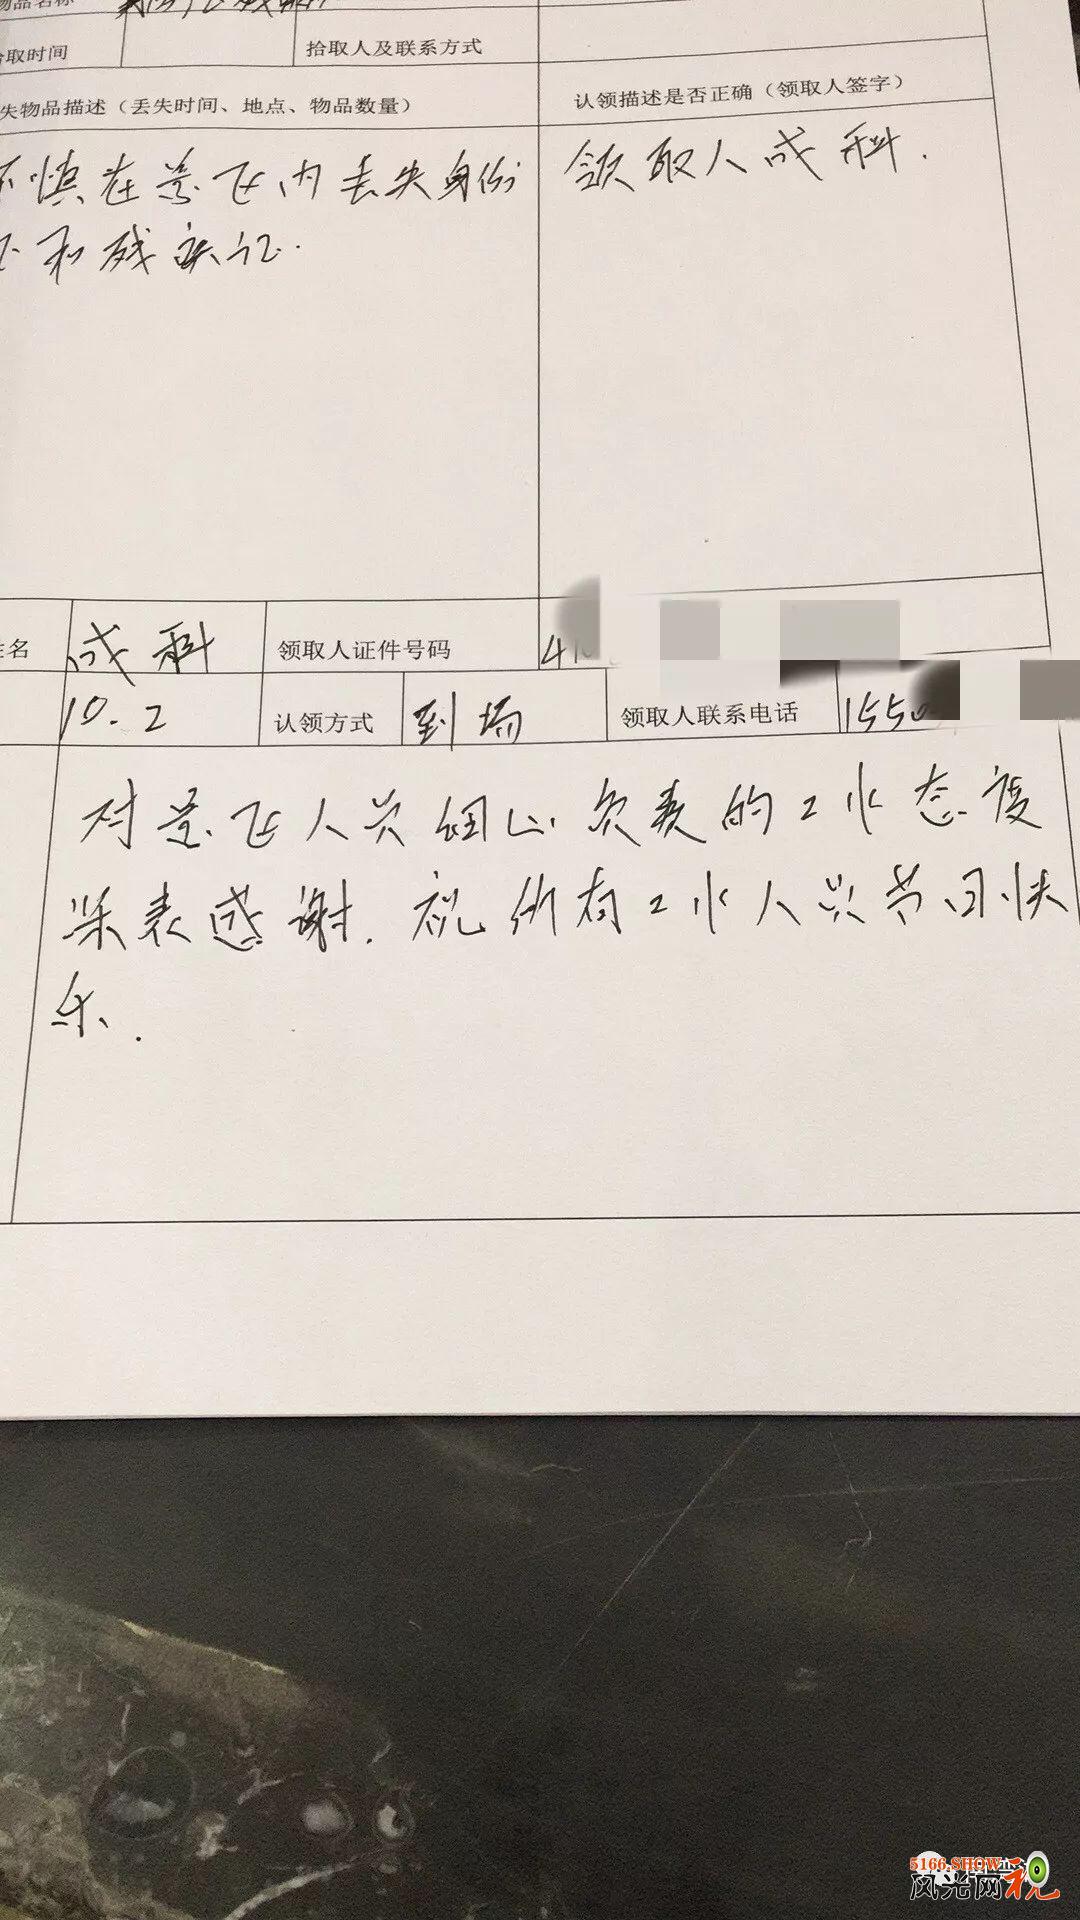 物品名称
拾取时间 拾取人及联系方式
失物品描述（丢失时间、地点、物品数量） 认领描述是否正确（领取人签字）
不慎在景区内丢失身份 领取人成科.
证和残疾证.
姓名 成科 领取人证件号码 41
10.2 认领方式 到场 领取人联系电话 1550
对景区人员细心负责的工作态度
深表感谢. 祝所有工作人员节日快
乐.
5166.SHOW
风光网视